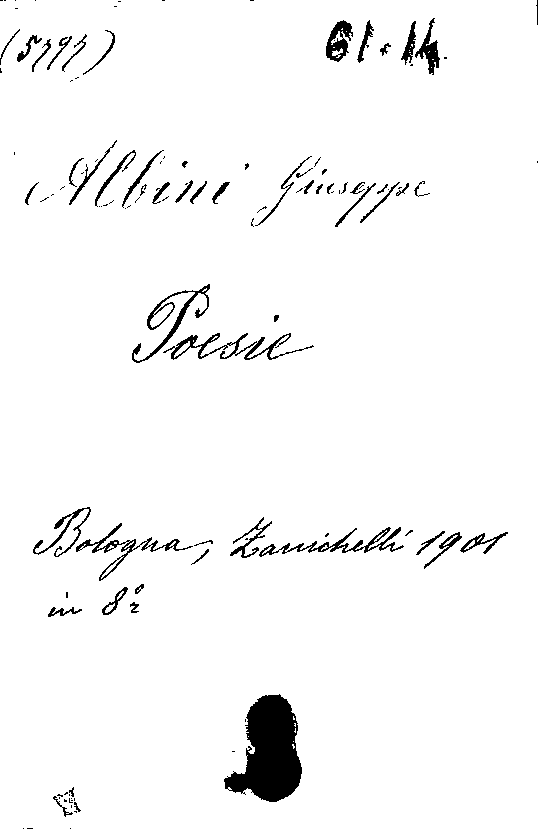 (5797) 61.14.
Albini Giuseppe
Poesie
Bologna, Zanichelli 1901
in 8º